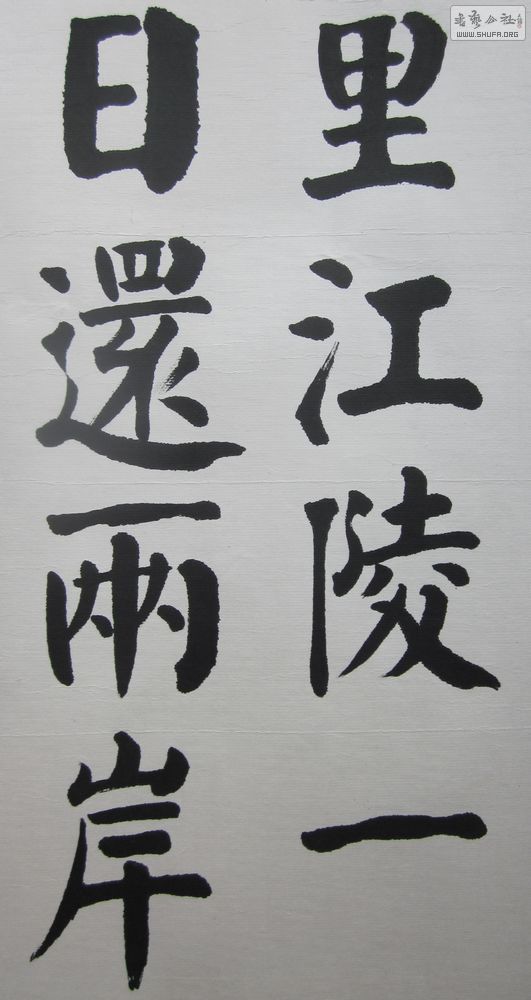 里江陵一
日還兩岸
书艺公社
WWW.SHUFA.ORG